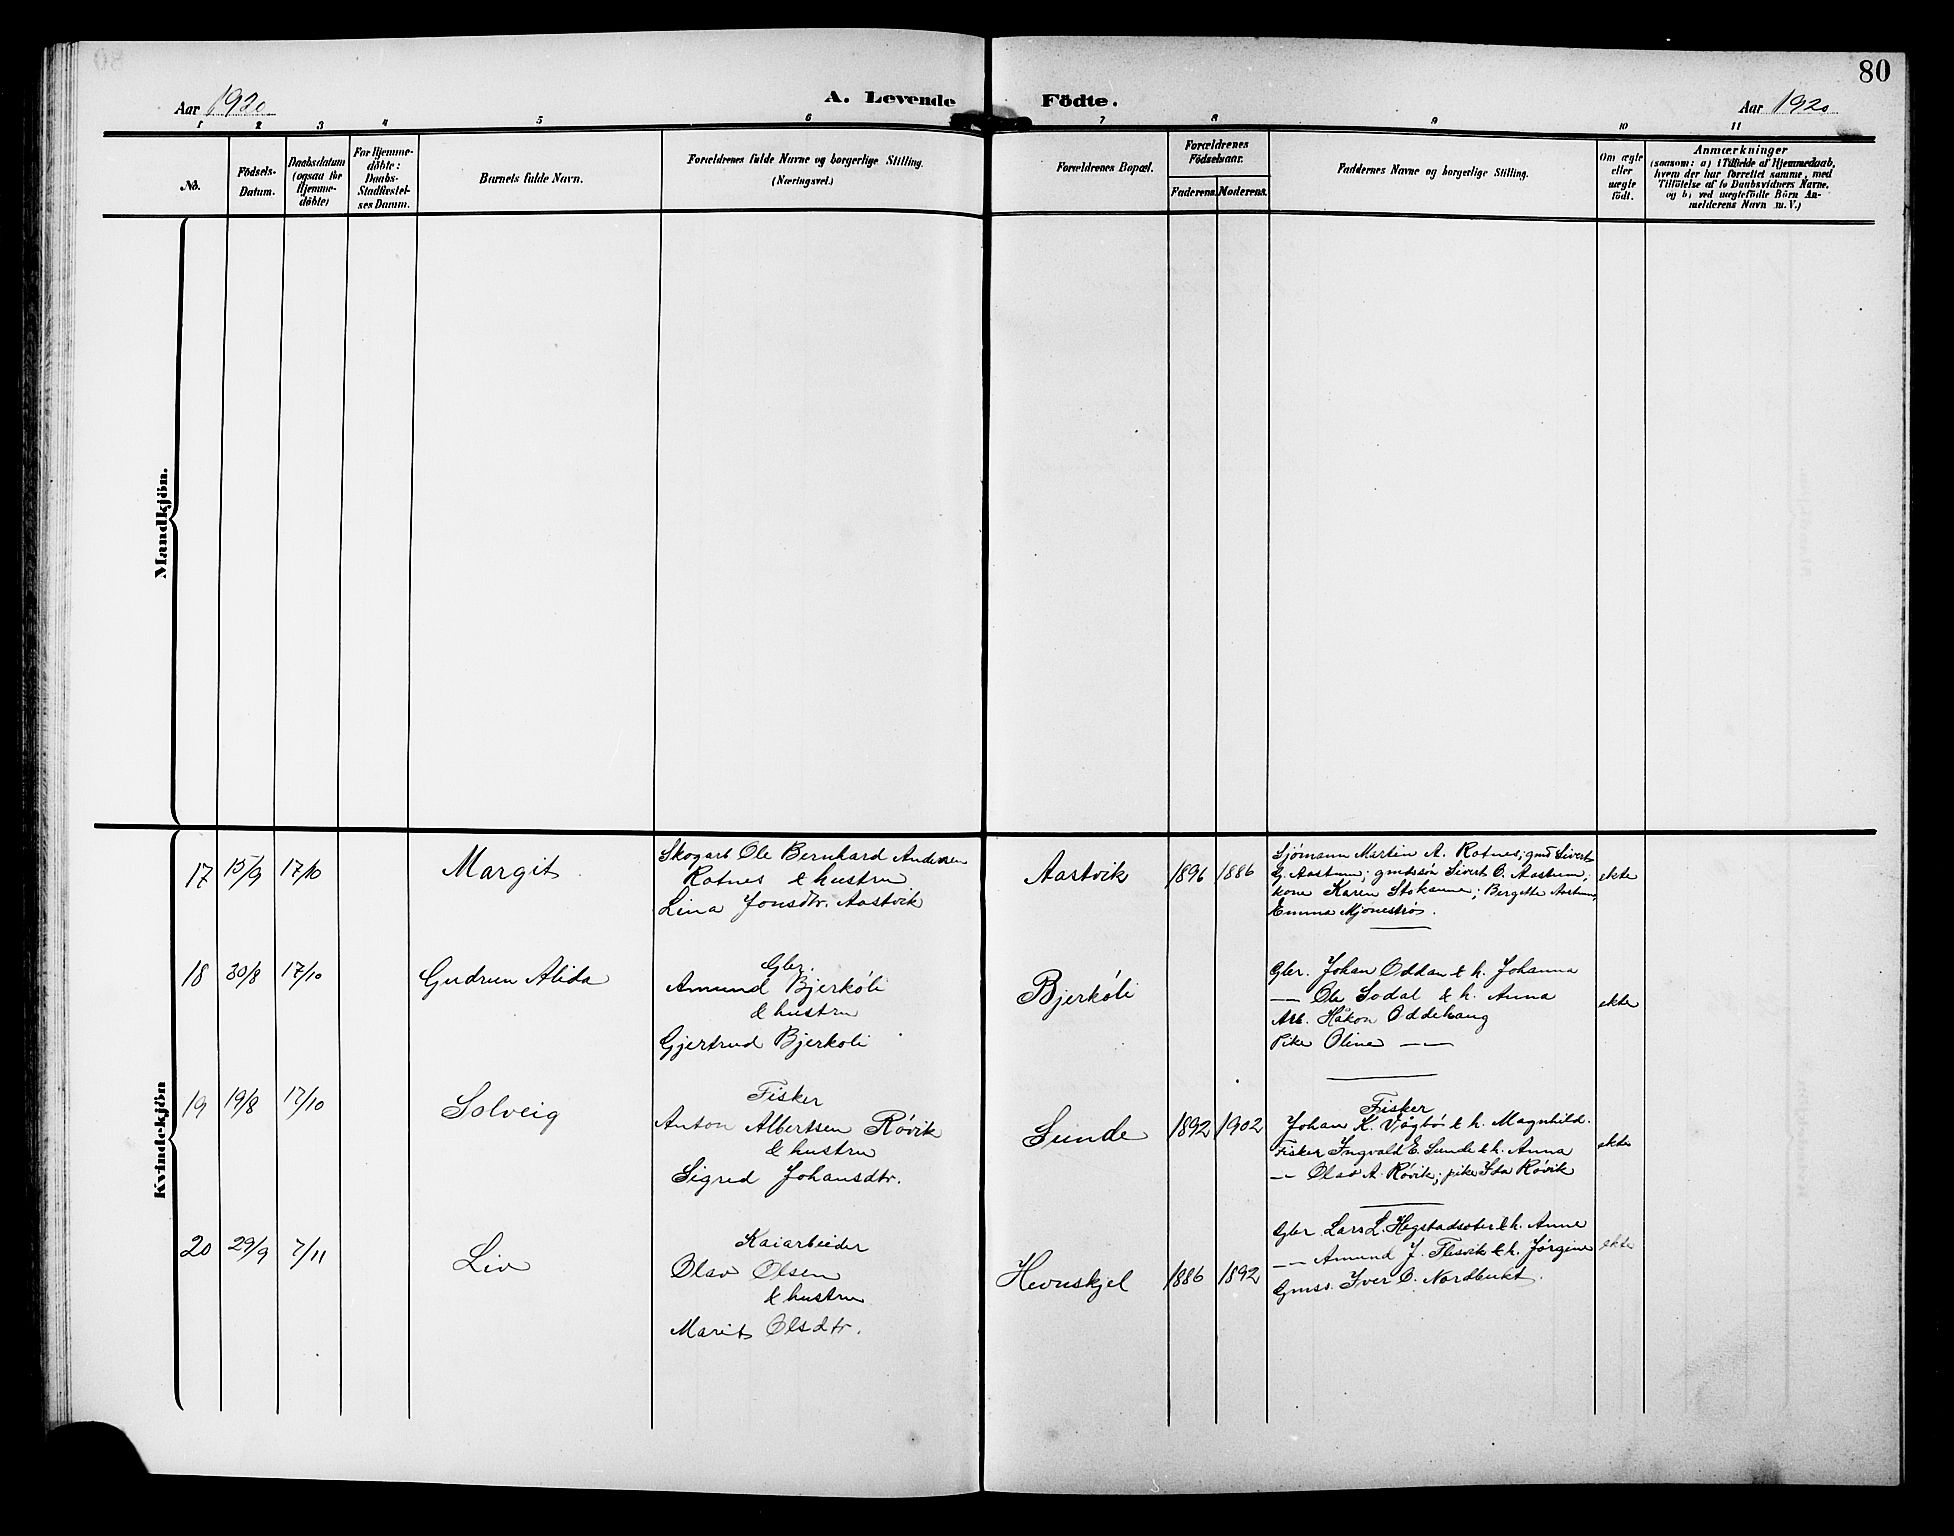 80
Aar 1920
A. Levende Födte.
Aar 1920
1 2 3 4 5 6 7 8 9 10 11
No.
Födsels-
Datum.
Daabsdatum
(ogsaa for
Hjemme-
döbte)
For Hjemme-
döbte:
Daabs-
Stadfæstel-
ses Datum.
Barnets fulde Navn.
Forældrenes fulde Navne og borgerlige Stilling.
(Næringsvei.)
Forældrenes Bopæl.
Forældrenes
Födselsaar.
Faderens. Moderens.
Faddernes Navne og borgerlige Stilling.
Om ægte
eller
uægte
født.
Anmærkninger
(saasom: a) i Tilfælde af Hjemmedaab,
hvem der har forrettet samme, med
Tilföielse af to Daabsvidners Navne,
og b) ved uægtefödte Börn An-
melderens Navn m. V.)
Mandkjön.
Kvindekjön
17 15/9 17/10
Margit
Skogarb Ole Bernhard Andersen
Rotnes & hustru
Lina Jonsdtr. Aastvik
Aastvik
1896 1886
Sjømann Martin A. Rotnes; gmd Sivert
G. Aastum; gmdssøn Sivert O. Aastum;
kone Karen Stoksune; Bergitte Aastum,
Emma Mjønestrø.
ekte
18 30/8 17/10
Gudrun Alida
Gbr.
Amund Bjerkøli
& hustru
Gjertrud Bjerkøli
Bjerkøli
Gbr. Johan Oddan & h. Johanna
— Ole Sodal & h. Anna
Arb. Håkon Oddehaug
Pike Oline — —
ekte
19 19/8 17/10
Solveig
Fisker
Anton Albertsen Røvik
& hustru
Sigrid Johansdtr.
Sunde
1892 1902
Fisker
Johan K. Vågbø & h. Magnhild.
Fisker Ingvald E. Sunde & h. Anna
— Olav A. Røvik; pike Ida Røvik
ekte
20 29/9 7/11
Liv
Kaiarbeider
Olav Olsen
& hustru
Marit Olsdtr.
Hevnskjel
1886 1892
Gbr Lars L. Hegstadseter & h. Anne
— Amund J. Flesvik & h. Jørgine
Gmss. Iver O. Nordbukt.
ekte